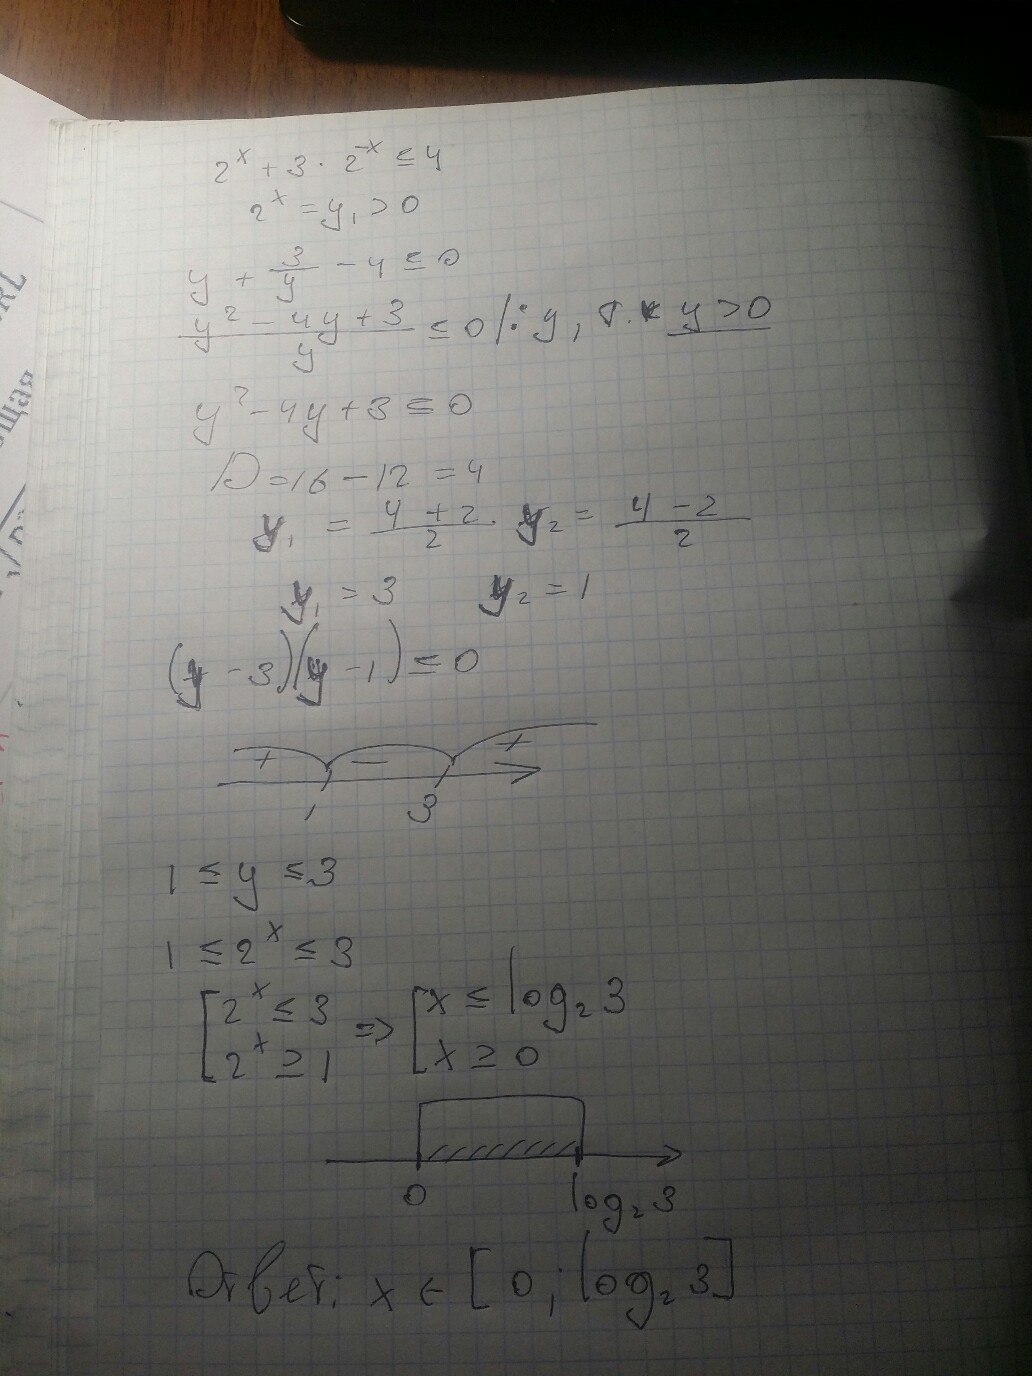 2^x + 3 · 2^-x ≤ 4
2^x = y, > 0
y + 3/y - 4 ≤ 0
(y² - 4y + 3)/y ≤ 0 | : y, т.к y > 0
y² - 4y + 3 ≤ 0
D = 16 - 12 = 4
y₁ = (4 + 2)/2 y₂ = (4 - 2)/2
y₁ = 3 y₂ = 1
(y - 3)(y - 1) ≤ 0
+ - +
1 3
1 ≤ y ≤ 3
1 ≤ 2^x ≤ 3
[2^x ≤ 3 => [x ≤ log₂ 3
2^x ≥ 1 x ≥ 0
0 log₂ 3
Ответ: x ∈ [0; log₂ 3]
ощая